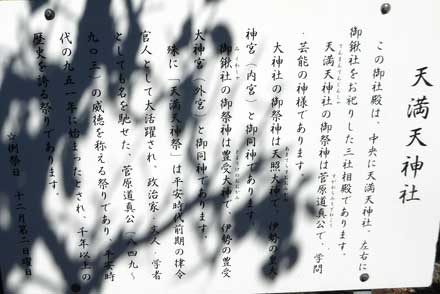 天満天神社
この御社殿は、中央に天満天神社、左右に
御鍬社をお祀りした三社相殿であります。
天満天神社の御祭神は菅原道真公で、学問
・芸能の神様であります。
大神社の御祭神は天照大神で、伊勢の皇大
神宮（内宮）と御同神であります。
御鍬社の御祭神は豊受大神で、伊勢の豊受
大神宮（外宮）と御同神であります。
殊に「天満天神祭」は平安時代前期の律令
官人として大活躍され、政治家・文人・学者
としても名を馳せた、菅原道真公（八四九～
九〇三）の威徳を称える祭りであり、平安時
代の九五一年に始まったとされ、千年以上の
歴史を誇る祭りであります。
☆例祭日　十二月第二日曜日